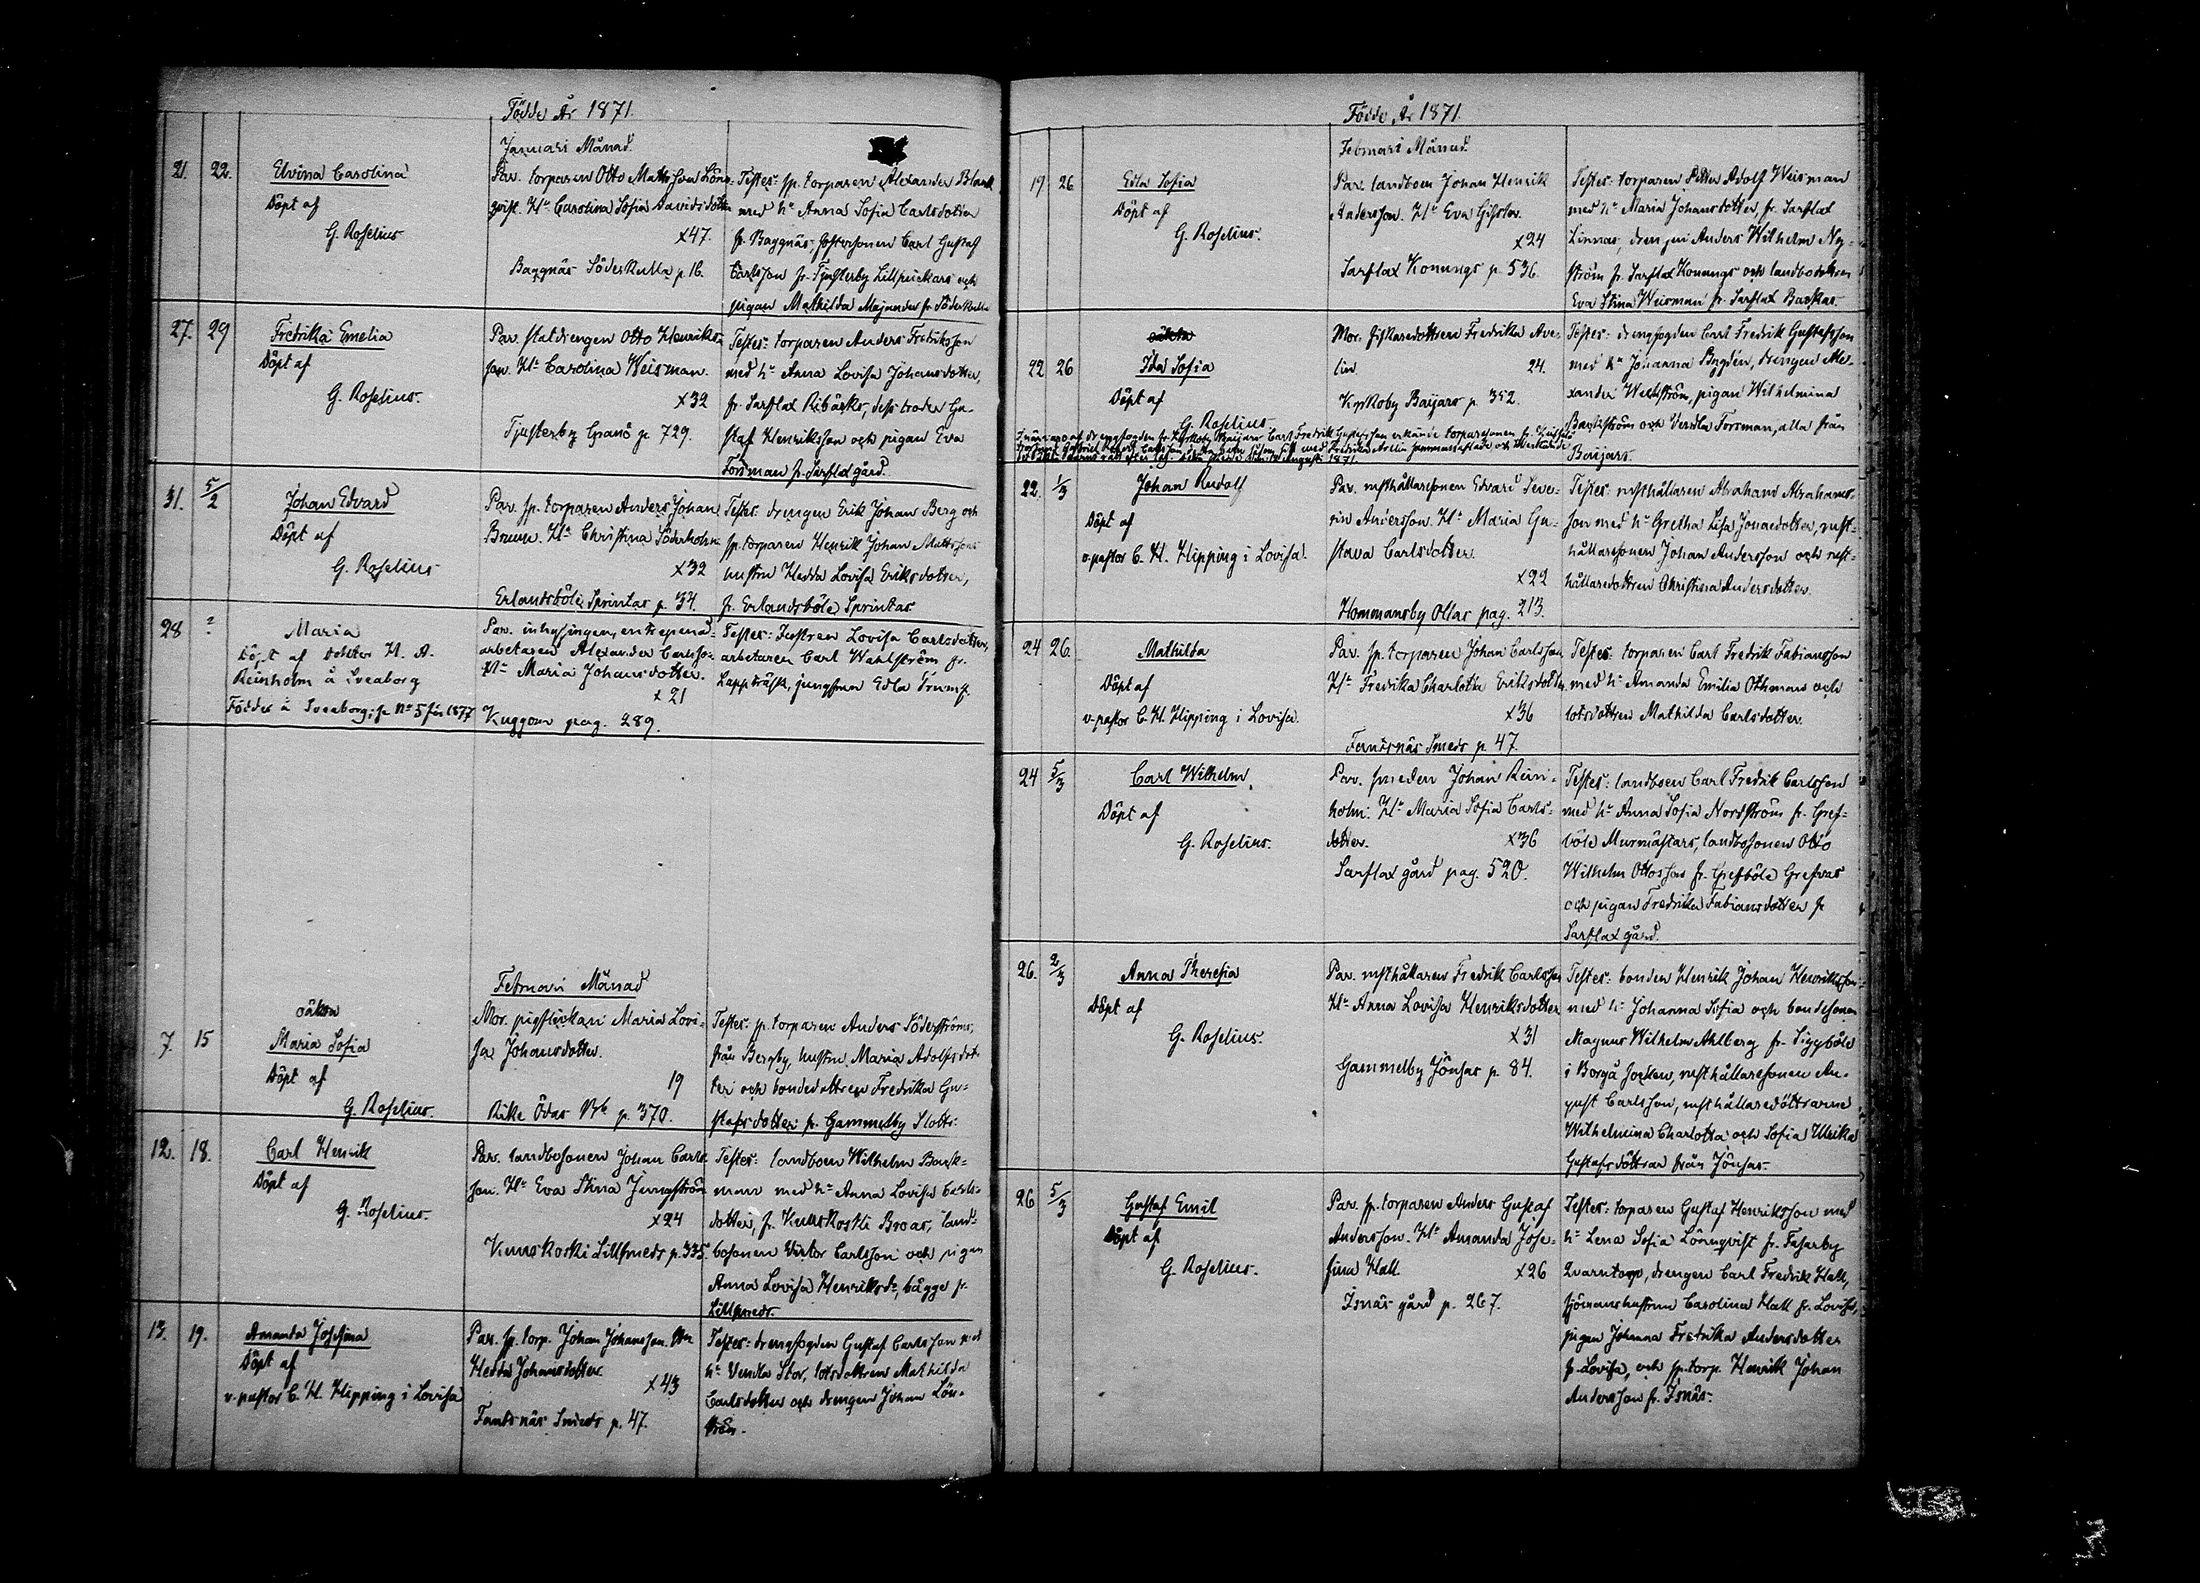 Födde År 1871.
Januari Månad.
21. 22. Elvina Carolina
Döpt af
G. Roselius
Par. torparen Otto Mattsson Lönn-
qvist. Hu Carolina Sofia Davidsdotter
x47.
Baggnäs Söderkulla p. 16.
Testes: sp. torparen Alexander Blank
med hu Anna Sofia Carlsdotter
fr. Baggnäs, fostersonen Carl Gustaf
Carlsson fr. Tjusterby Lillpuckars och
pigan Mathilda Majander fr. Söderkulla
27. 29 Fredrika Emelia
Döpt af
G. Roselius.
Par. statdrengen Otto Henriks-
son. Hu Carolina Weisman.
x32
Tjusterby Granö p. 729.
Testes: torparen Anders Fredriksson
med hu Anna Lovisa Johansdotter,
fr. Sarflax Ribäcks, dess broder Gu-
staf Henriksson och pigan Eva
Forsman fr. Sarflax gård.
31. 5/2 Johan Edvard
Döpt af
G. Roselius
Par. sp. torparen Anders Johan
Brunn. Hu Christina Söderholm
x32
Erlandsböle Sprintas p. 34.
Testes: drengen Erik Johan Berg och
sp. torparen Henrik Johan Mattssons
hustru Hedda Lovisa Eriksdotter,
fr. Erlandsböle Sprintas
28 ? Maria
Döpt af doktor H. A.
Reinholm å Sveaborg
Föddes å Sveaborg; se No 5 för 1877
Par. inhysingen, entrepenad-
arbetaren Alexander Carlsso-
Hu Maria Johansdotter.
x 21
Kuggom pag. 289.
Testes: Lovisa Carlsdotter,
arbetaren Carl Wahlström fr.
Lappträsk, jungfrun Edla Trump
Februari Månad
7. 15 oäkta
Maria Sofia
Döpt af
G. Roselius.
Mor. pigflickan Maria Lovi-
sa Johansdotter.
19
Rike Ödas p. 370.
Testes: sp. torparen Anders Söderströms
från Bergby, hustru Maria Adolfsdot-
ter och bondedottren Fredrika Gu-
stafsdotter fr. Gammelby Slotts.
12. 18. Carl Henrik
Döpt af
G. Roselius.
Par. landbosonen Johan Carls-
son. Hu Eva Stina Jungström
x24
Kuuskoski Lillsmeds p. 335.
Testes: landboen Wilhelm Back-
man med hu Anna Lovisa Carls-
dotter, fr. Kuuskoski Broas, land-
bosonen Victor Carlsson och pigan
Anna Lovisa Henriksdr, bägge fr.
Lillsmeds.
13. 19. Amanda Josefina
Döpt af
v. pastor C. H. Hipping i Lovisa
Par. sp. torp. Johan Johansson. Hu
Hedda Johansdotter.
x43
Fantsnäs Smeds p. 47.
Testes: drengfogden Gustaf Carlsson med
hu Vendla Stor, lotsdottren Mathilda
Carlsdotter och drengen Johan Lön-
Födde År 1871.
Februari Månad.
19. 26 Edla Sofia
Döpt af
G. Roselius.
Par. landboen Johan Henrik
Andersson. Hu Eva
x24
Sarflax Konungs p. 536.
Testes: torparen Petter Adolf Weisman
med hu Maria Johansdotter, fr. Sarflax
Linnas, drengen Anders Wilhelm Ny-
ström fr. Sarflax Konungs och landbodottren
Eva Stina Weisman fr. Sarflax Backas.
oäkta
22 26 Ida Sofia
Döpt af
G. Roselius
Mor. fiskaredottren Fredrika Ave-
lin.
24.
Kyrkoby Baijars p. 352.
Testes: drengfogden Carl Fredrik Gustafsson
med hu Johanna Bygdén, drengen Ale-
xander Weckström, pigan Wilhelmina
Backström och Vendla Forsman, alla från
Baijars.
drengfogden fr. Kyrkoby Baijars Carl Fredrik Gustafsson erkände torparesonen
med Fredrika Avelin
Augusti 1871.
22. 1/3 Johan Rudolf
Döpt af
v. pastor C. H. Hipping i Lovisa.
Par. rusthållaresonen Edvard Seve-
rin Andersson. Hu Maria Gu-
stava Carlsdotter.
x22
Hommansby Ollas pag. 213.
Testes: rusthållaren Abraham Abrahams-
son med hu Gretha Lisa Jonaedotter, rust-
hållaresonen Johan Andersson och rust-
hållaredottren Christina Andersdotter.
24 26. Mathilda
Döpt af
v. pastor C. H. Hipping i Lovisa.
Par. sp. torparen Johan Carlsson,
Hu Fredrika Charlotta Eriksdotter
x36
Fantsnäs Smeds p. 47.
Testes: torparen Carl Fredrik Fabiansson
med hu Amanda Emilia Othman och
lotsdottren Mathilda Carlsdotter.
24 5/3 Carl Wilhelm
Döpt af
G. Roselius.
Par. smeden Johan Rein-
holm: Hu Maria Sofia Carls-
dotter. x36
Sarflax gård pag. 520.
Testes: landboen Carl Fredrik Carlsson
med hu Anna Sofia Nordström fr. Gref-
böle Murmästars, landbosonen Otto
Wilhelm Ottosson fr. Grefböle Grefvas
och pigan Fredrika Fabiansdotter fr.
Sarflax gård.
26. 2/3 Anna Theresia
Döpt af
G. Roselius.
Par. rusthållaren Fredrik Carlsson
Hu Anna Lovisa Henriksdotter
x31
Gammelby Jönsas p. 84.
Testes: bonden Henrik Johan Henriksson
med hu Johanna Sofia och bondesonen
Magnus Wilhelm Ahlberg fr. Siggböle
i Borgå Socken, rusthållaresonen Au-
gust Carlsson, rusthållaredöttrarne
Wilhelmina Charlotta och Sofia Ulrika
Gustafsdöttrar från Jönsas.
26 5/3 Gustaf Emil
Döpt af
G. Roselius.
Par. sp. torparen Anders Gustaf
Andersson. Hu Amanda Jose-
fina Hall. x26
Isnäs gård p. 267.
Testes: torparen Gustaf Henriksson med
hu Lena Sofia Lönnqvist fr. Fasarby
Qvarntorp, drengen Carl Fredrik Hall,
sjömanshustrun Carolina Hall fr. Lovisa,
pigan Johanna Fredrika Andersdotter
fr. Lovisa, och sp. torp. Henrik Johan
Andersson fr. Isnäs.